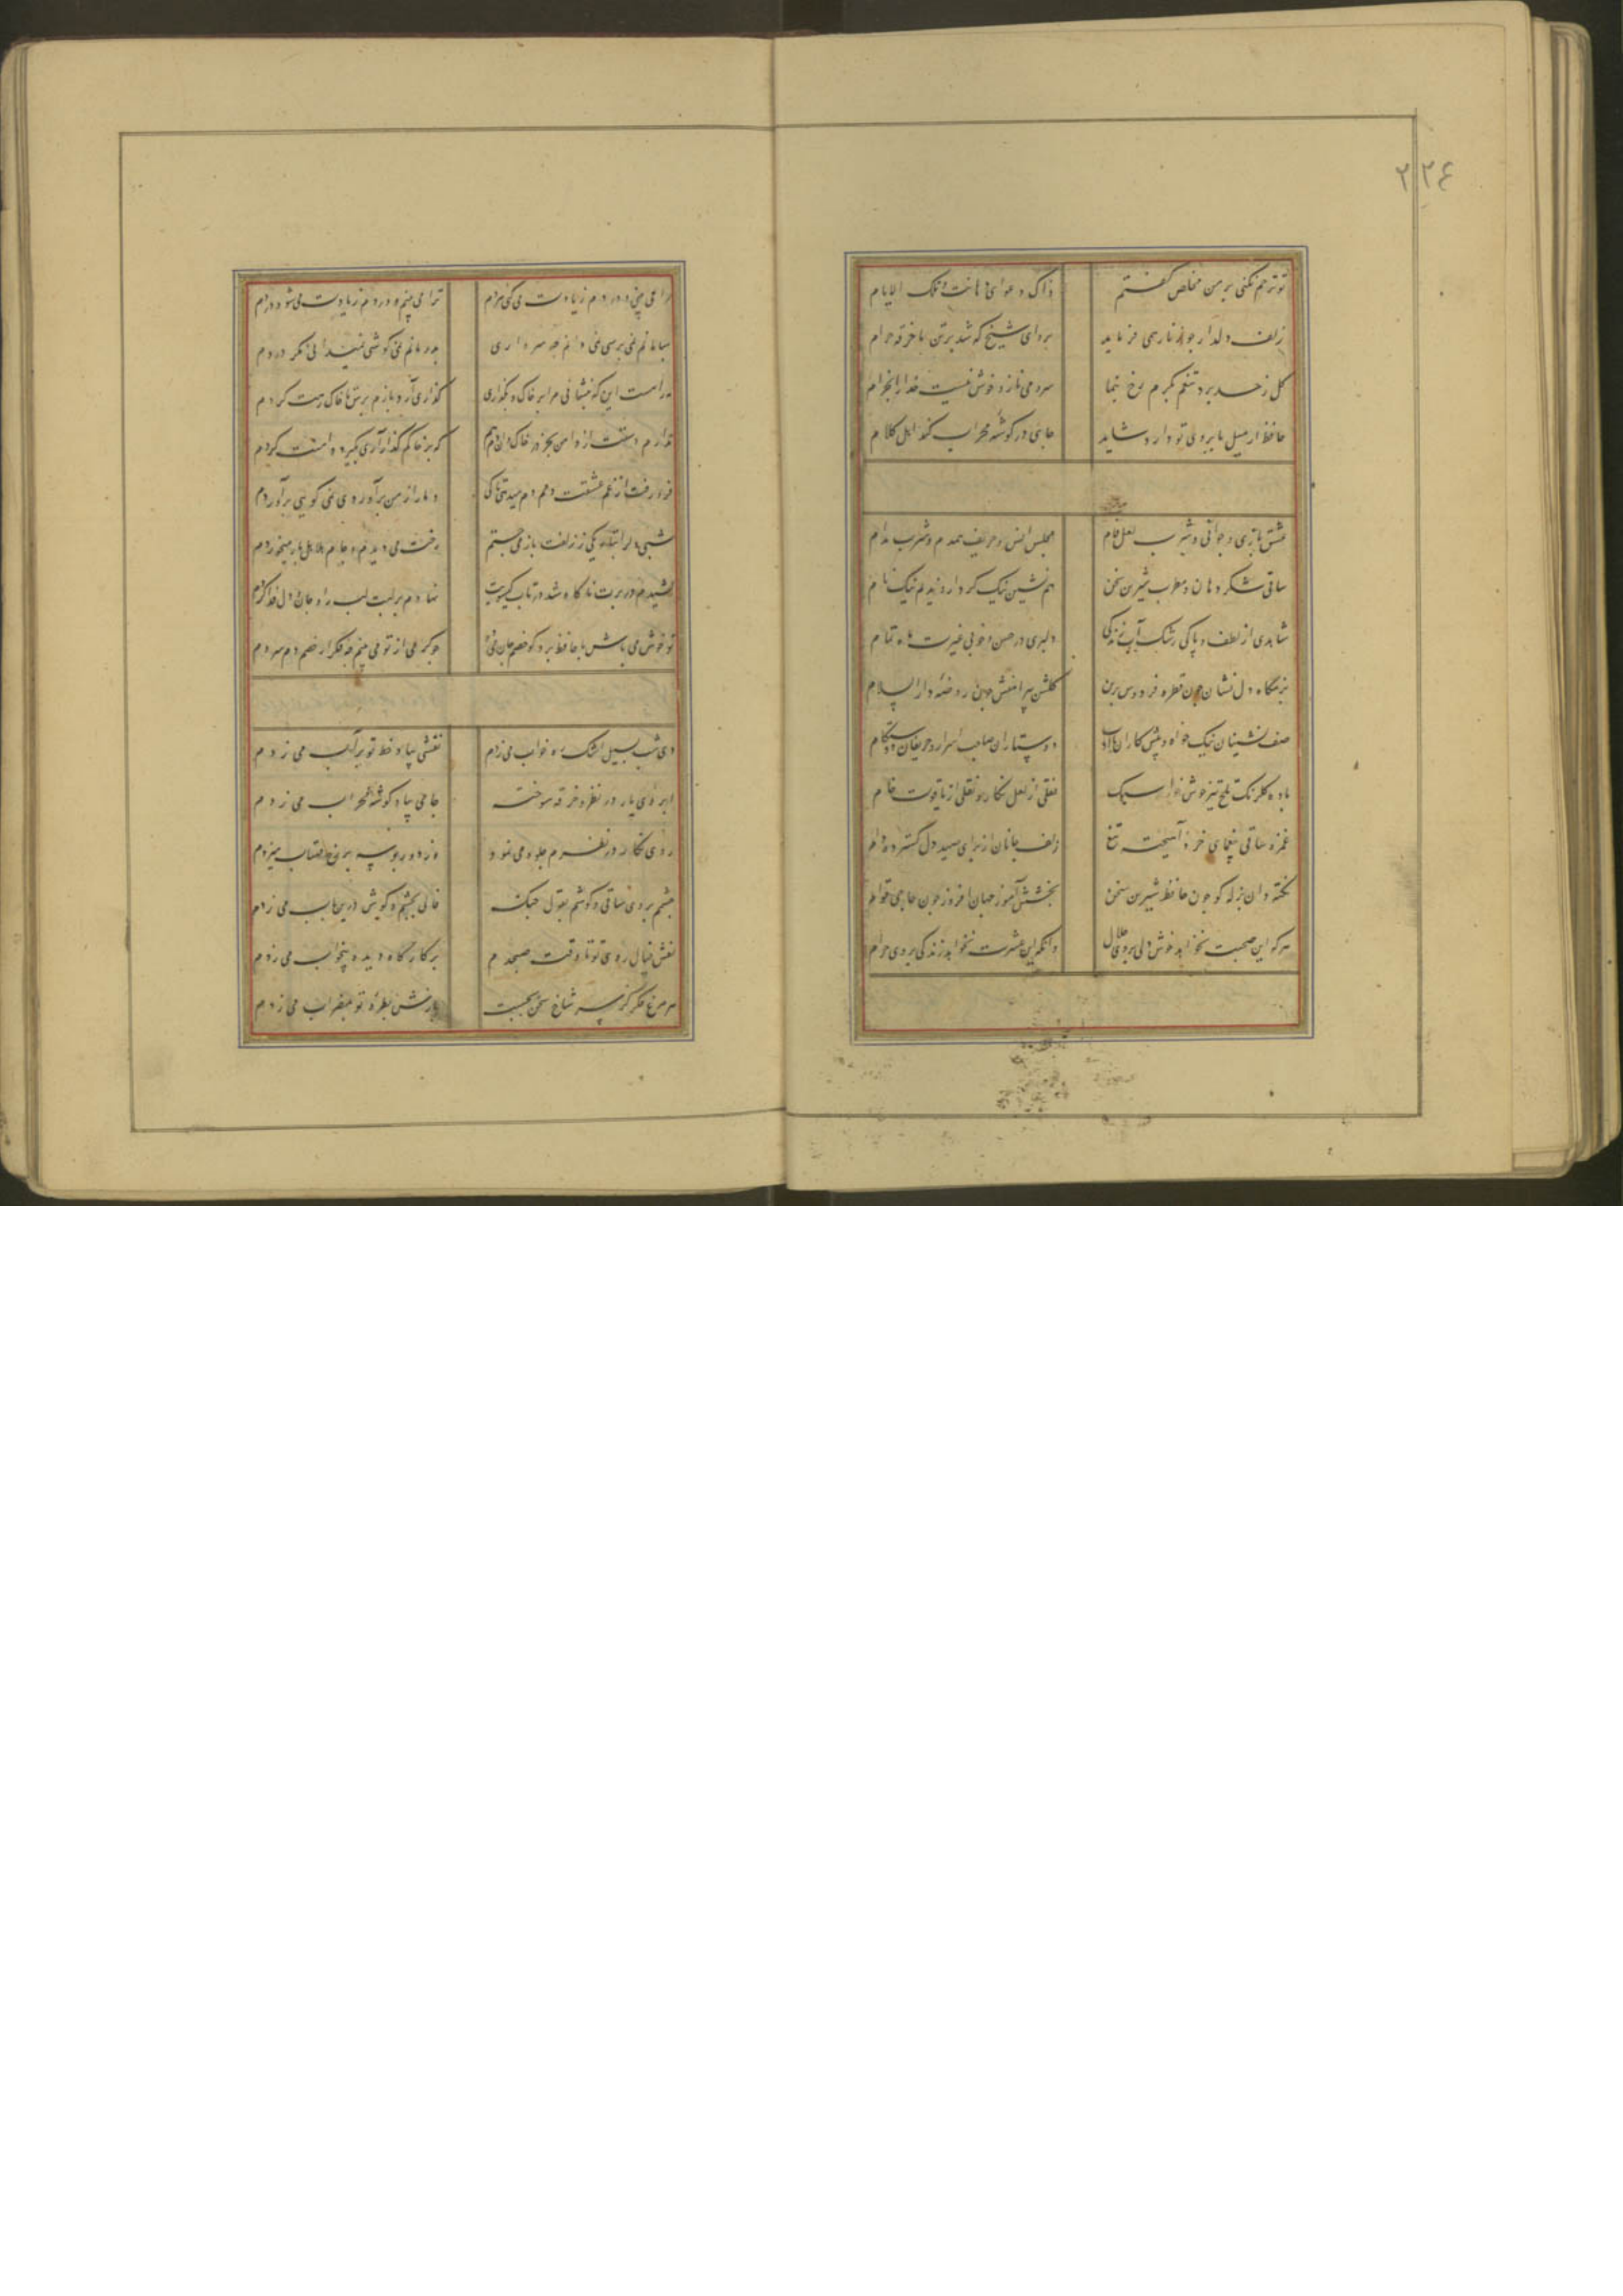 ۲۲۴
تو ترحم نکنی بر من مخلص گفتم
ذاک دعوای ها انت و تلک الایام
زلف دلدار چو زنار همی فرماید
برو ای شیخ که شد بر تن ما خرقه حرام
گل ز حد برد تنعم بکرم رخ بنما
سرو می نازد و خوش نیست خدا را بخرام
حافظ ار میل بابروی تو دارد شاید
جای در گوشه محراب کند اهل کلام
عشق بازی و جوانی و شراب لعل فام
مجلس انس و حریف همدم و شرب مدام
ساقی شکر دهان و مطرب شیرین سخن
هم نشین نیک کردار و ندیم نیک نام
شاهدی از لطف و پاکی رشک آب زندگی
دلبری در حسن و خوبی غیرت ماه تمام
بزمگاه دل نشان چون قطره فردوس برین
گلشن پیرامنش چون روضه دار السلام
صف نشینان نیک خواه و پیش کاران با ادب
دوستاران صاحب اسرار و حریفان دوستکام
باده گلرنگ تلخ تیز خوش خوار سبک
نقلی از لعل نگار و نقلی از یاقوت خام
غمزه ساقی بیغمای خرد آهیخته تیغ
زلف جانان از برای صید دل گسترده دام
نکته دان بذله گو چون حافظ شیرین سخن
بخشش آموز جهان افروز چون حاجی قوام
هر که این صحبت نخواهد خوش دلی بروی حلال
وانکه این عشرت نخواهد زندگی بروی حرام
مرا می بینی و دردم زیادت می کنی هردم
ترا می بینم و دردم زیادت می شود دردم
بسامانم نمی پرسی نمی دانم چه سر داری
بدرمانم نمی کوشی نمیدانی مگر دردم
نه راهست این که بگذاری مرا بر خاک و بگذاری
گذاری آر و بازم پرس تا خاک رهت گردم
ندارم دستت از دامن بجز در خاک و آن دم هم
که بر خاکم گذار آری بگیرد دامنت گردم
فرو رفت از غم عشقت دمم دم میدهی تا کی
دمار از من برآوردی نمی گویی برآوردم
شبی دل را بتاریکی ز زلفت باز می جستم
رخت می دیدم و جامی هلالی باز میخوردم
کشیدم در برت ناگاه و شد در تاب گیسویت
نهادم بر لبت لب را و جان و دل فدا کردم
تو خوش می باش با حافظ برو گو خصم جان می ده
چو گرمی از تو می بینم چه فکر از خصم دم سردم
دی شب بسیل اشک ره خواب می زدم
نقشی بیاد خط تو بر آب می زدم
ابروی یار در نظر و خرقه سوخته
جامی بیاد گوشه محراب می زدم
روی نگار در نظرم جلوه می نمود
وز دور بوسه بر رخ مهتاب میزدم
چشمم بروی ساقی و گوشم بقول چنگ
فالی بچشم و گوش درین باب می زدم
نقش خیال روی تو تا وقت صبحدم
بر کارگاه دیده بیخواب می زدم
هر مرغ فکر کز سر شاخ سخن بجست
بازش بطره تو بمضراب می زدم